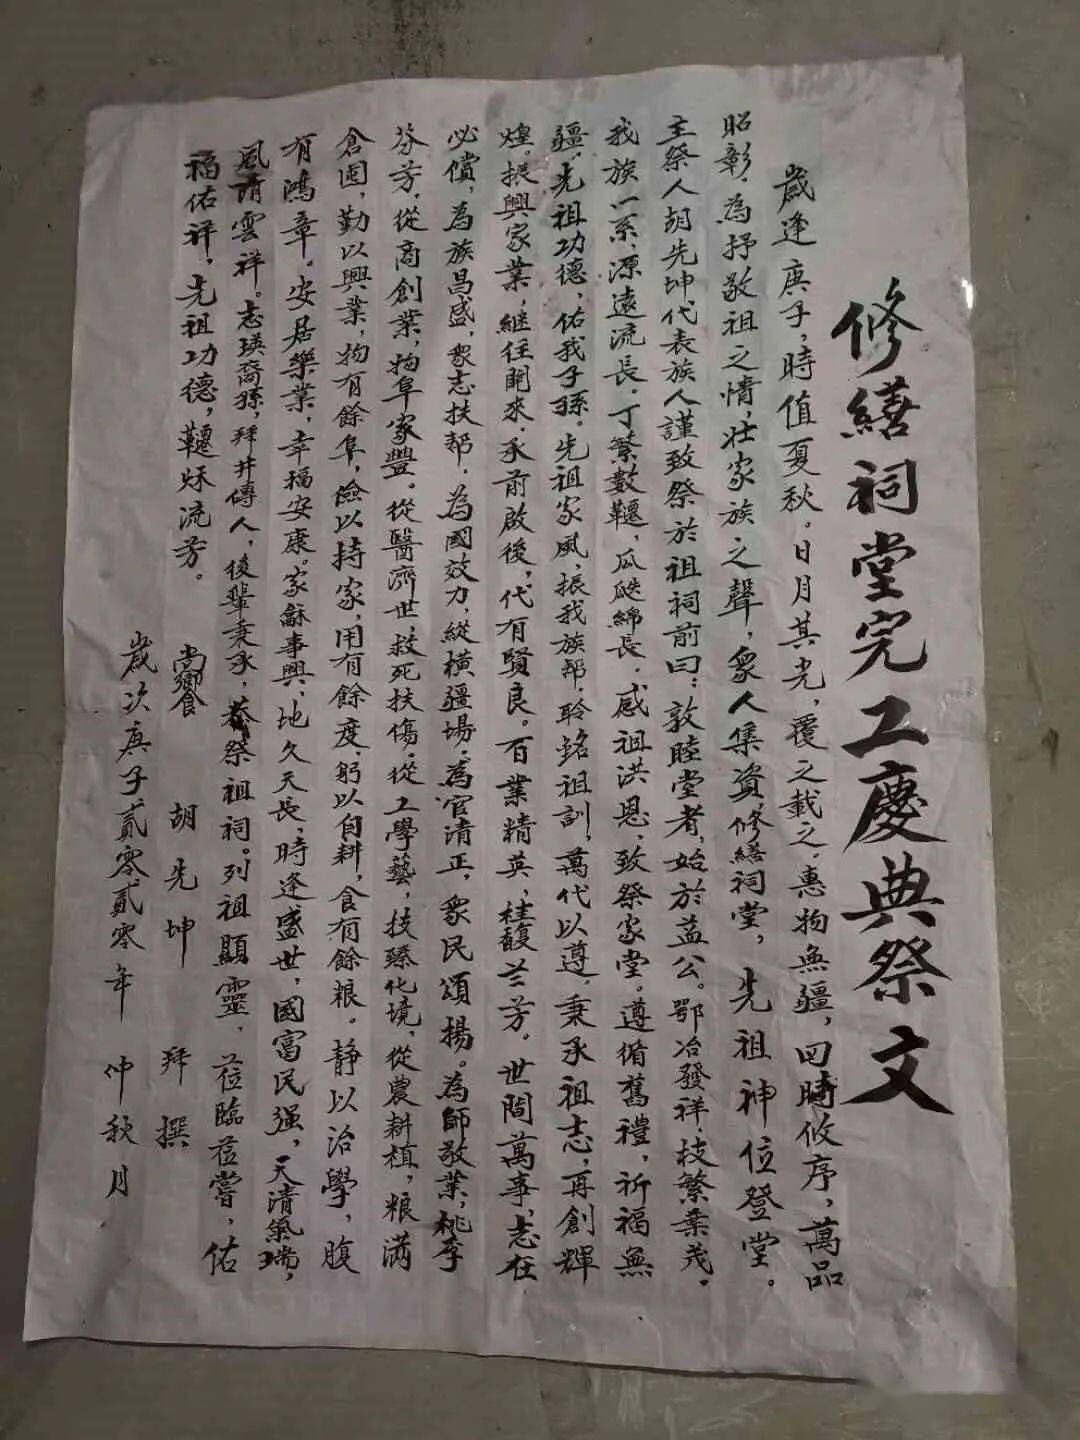 修繕祠堂完工慶典祭文
歲逢庚子，時值夏秋。日月其光，覆之載之，惠物無疆，四時攸序，萬品
昭彰，為抒敬祖之情，壯家族之聲，衆人集資修繕祠堂，先祖神位登堂。
主祭人胡先坤代表族人謹致祭於祖祠前曰：敦睦堂者，始於益公。鄂冶發祥，技繁業茂，
我族一系，源遠流長，丁繁數韆，瓜瓞綿長，感祖洪恩，致祭家堂。遵循舊禮，祈福無
疆，先祖功德，佑我子孫。先祖家風，振我族幫，聆銘祖訓，萬代以遵，秉承祖志，再創輝
煌。振興家業，継往開來，承前啟後，代有賢良。百業精英，桂馥兰芳，世間萬事，志在
必償，為族昌盛，衆志扶幫，為國效力，縱橫疆場，為官清正，衆民頌揚。為師敬業，桃李
芬芳，從商創業，物阜家豐。從醫濟世，救死扶傷，從工學藝，技臻化境，從農耕植，粮满
倉囤，勤以興業，物有餘阜，儉以持家，用有餘度，躬以自耕，食有餘粮。靜以治學，腹
有鴻章。安居樂業，幸福安康。家龢事興，地久天長，時逢盛世，國富民强，天清氣瑞，
風清雲祥。志瑛裔孫，拜井傳人，後輩秉承，恭祭祖祠。列祖顯靈，莅臨莅嘗，佑
福佑祥，先祖功德，韆秌流芳。
尚饗 胡先坤 拜撰
歲次庚子貳零貳零年 仲秋月